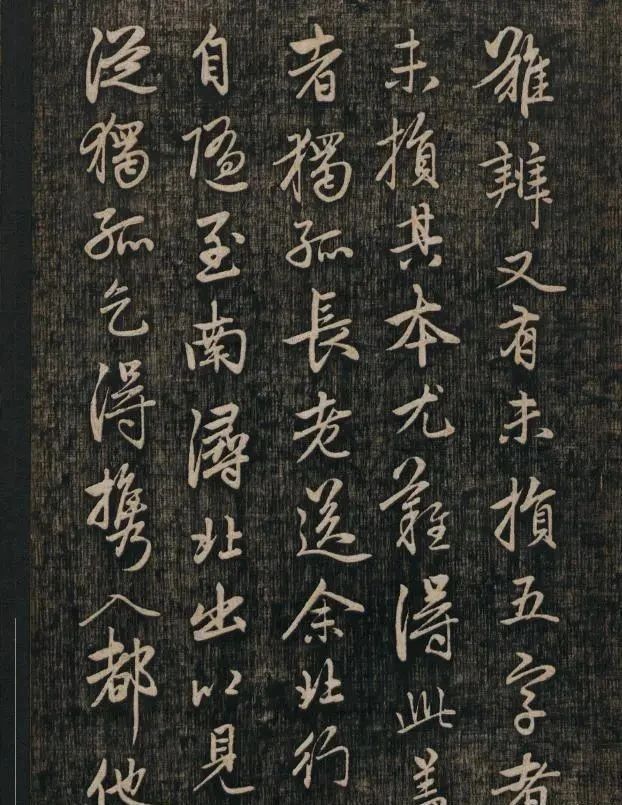 難辨又有未損五字者
未損其本尤難得此盖
者獨孤長老送余北行
自隨至南潯北出以見
從獨孤乞得攜入都他